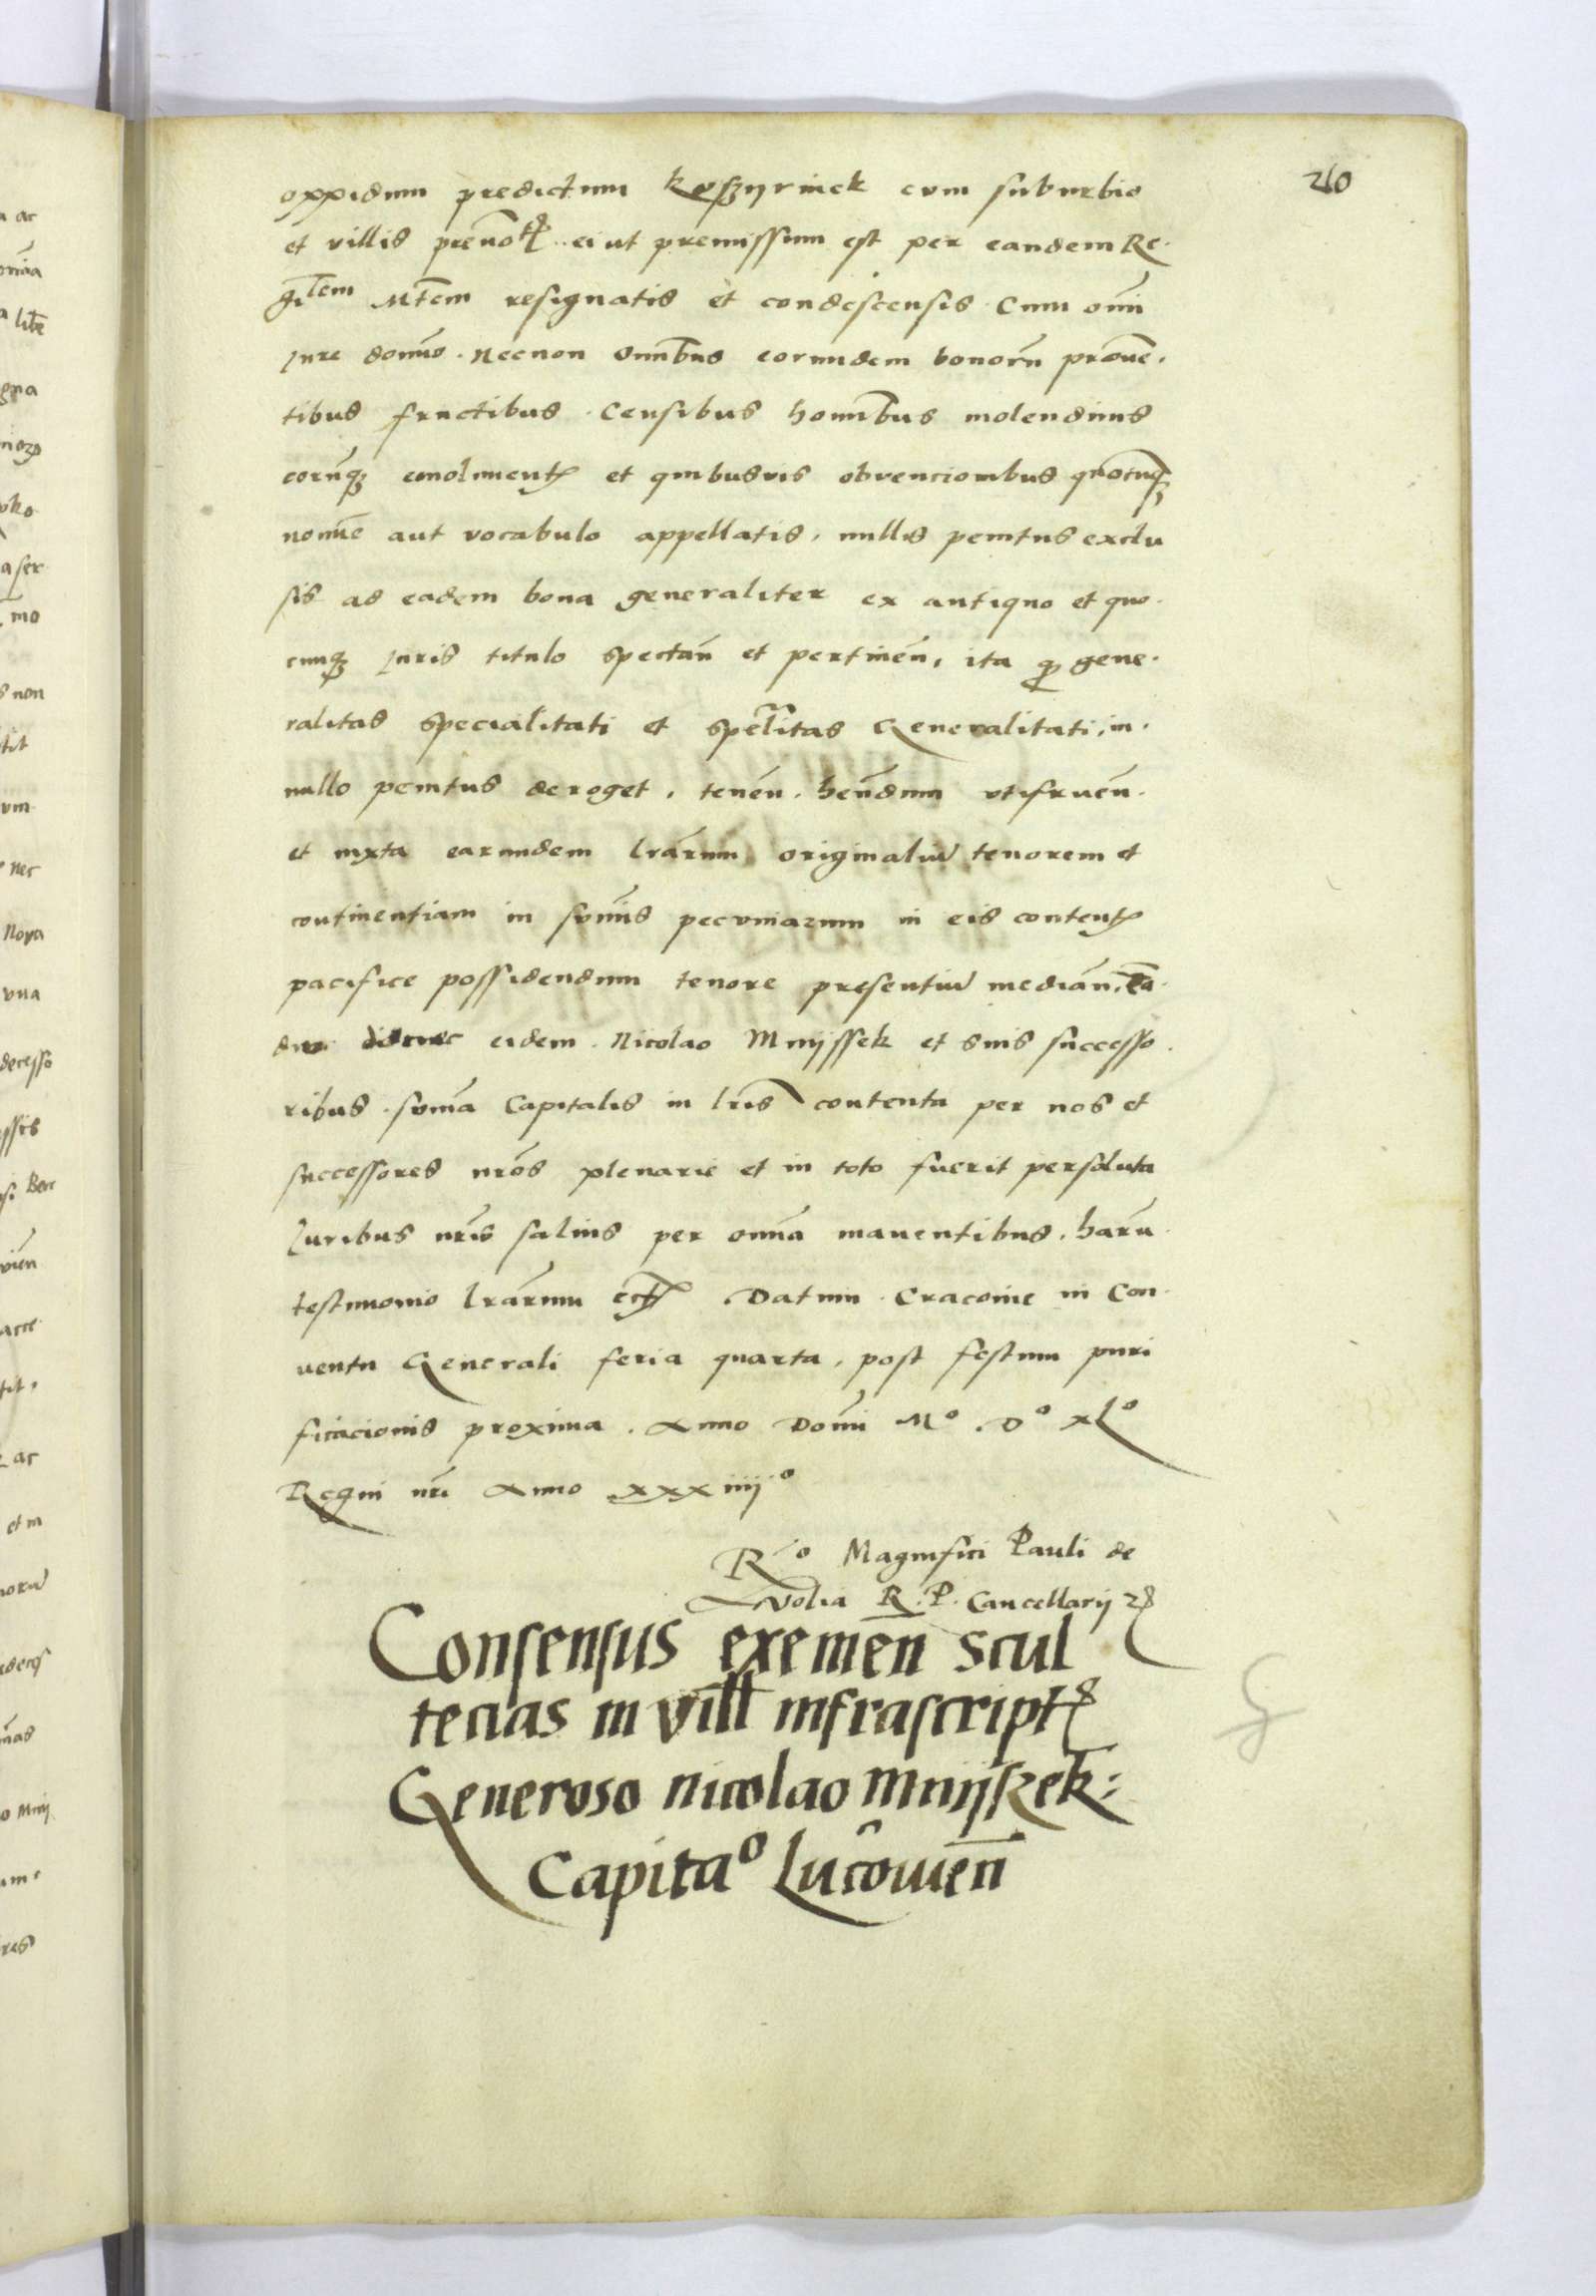 210
oppidum predictum Koszyrinek cum suburbio
et villis prenõtꝭ .. ei ut premissum est per eandem Re.
gĩlem Mt̃em resignatis et condescensis . Cum om̃i
Jure domĩo . Necnon om̃ibus eorundem bonorũ prouẽ.
tibus fructibus . Censibus homĩbus molendinis
eorũqꝫ emolumentꝭ et quibusuis obvencionibus quocũqꝫ
nomĩe aut vocabulo appellatis , nullis penitus exclu
sis ad eadem bona generaliter ex antiquo et quo.
cunqꝫ Juris titulo spectañ et pertineñ, ita ꝙ gene.
ralitas specialitati et specĩalitas Generalitati, in.
nullo penitus deroget . teneñ . heñdum utifrueñ.
et iuxta earundem lr̃arum originaliũ tenorem et
continentiam in sum̃is pecuniarum in eis contentꝭ
pacifice possidendum tenore presentiũ mediañ,
donec eidem . Nicolao Mnijssek et suis successo.
ribus . sum̃a Capitalis in lr̃is contenta per nos et
successores nr̃os plenarie et in toto fuerit persoluta
Juribus nr̃is saluis per om̃ia manentibus . harũ
testimonio lr̃arum ectꝭ . Datum . Cracouie in Con.
uentu Generali feria quarta . post festum puri
ficacionis proxima . Anno Domĩ Mº . Dº xlº
Regni nr̃i Anno xxxiiijº
Rº Magnifici Pauli de
Volia R. P. Cancellarij ꝛꝭ
Consensus exemeñ scul
tecias in vill̃ infrascriptꝭ
Generoso Nicolao Mnijszek:
Capitaº Lucõuieñ